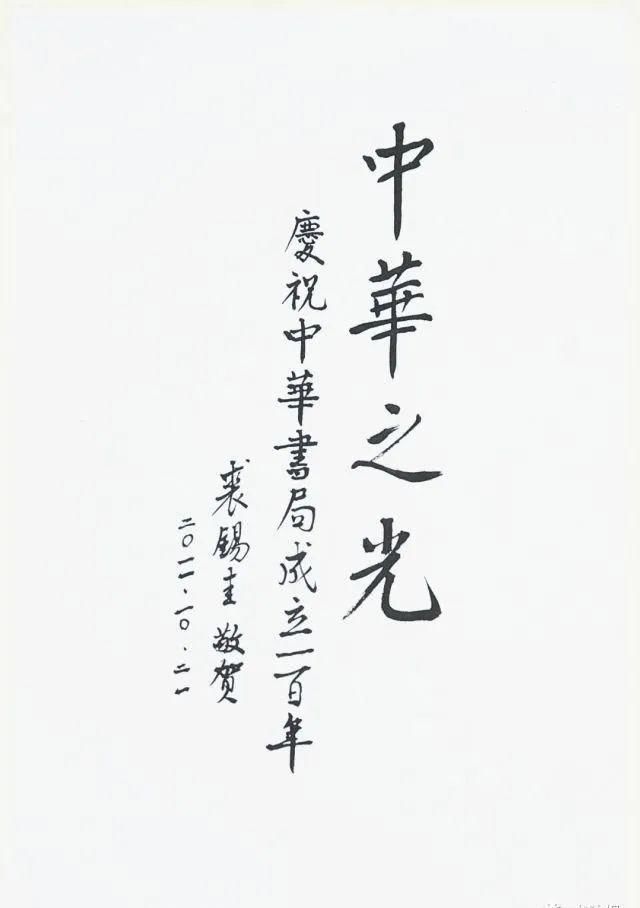 中華之光
慶祝中華書局成立一百年
裘錫圭敬賀
二〇一一·一〇·二一